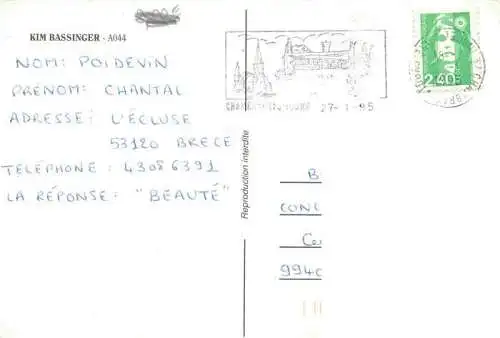 KIM BASSINGER - A044
NOM: POIDEVIN
PRÉNOM: CHANTAL
ADRESSE: L'ÉCLUSE
53120 BRECE
TELÉPHONE: 43086391
LA RÉPONSE: "BEAUTÉ"
Reproduction interdite
27-1-95
2,40
B
CONC
Ce
9940